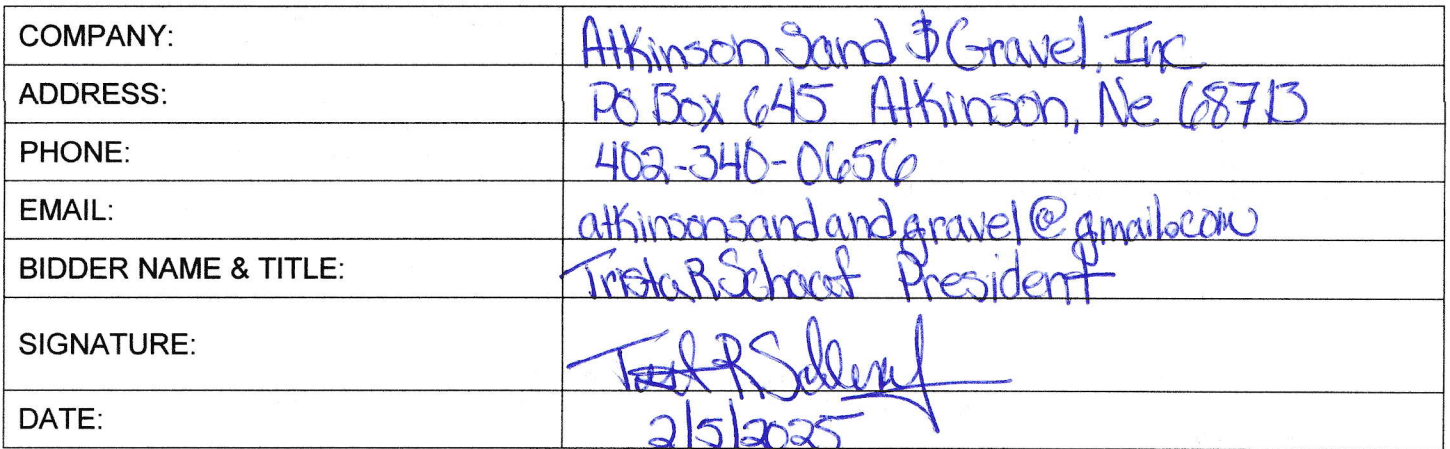 COMPANY: Atkinson Sand & Gravel, Inc
ADDRESS: PO Box 645 Atkinson, Ne 68713
PHONE: 402-340-0656
EMAIL: atkinsonsandandgravel@gmail.com
BIDDER NAME & TITLE: Trista R Schaaf President
SIGNATURE:
DATE: 2/5/2025